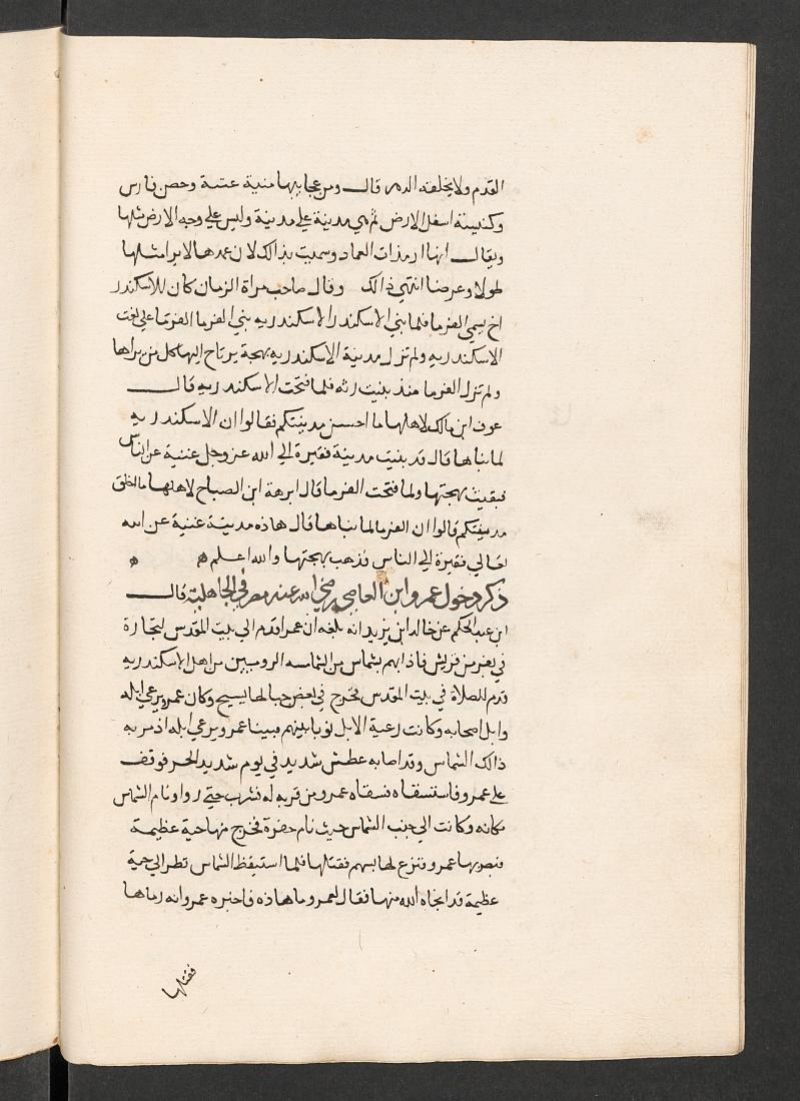 القدم ولا يخلقه الدهر قال ومن عجايبها منية عتبة وحصن فارس
وكنيسة اسفل الارض ثم هي مدينة علي مدينة وليس علي وجه الارض مثلها
ويقال انها ارم ذات العماد وسميت بذالك لان عمدها لا يرا مثلها
طولا وعرضا انتهي ذالك وقال صاحب مراة الزمان كان للاسكندر
اخ يسمي الفرما فلما بني الاسكندر الاسكندريه بني الفرما الفرما علي نعت
الاسكندريه ولم تزل مدينة الاسكندريه بهجة يرتاح اليها كل من يراها
ولم تزل الفرما منذ بنيت رثه فلما فتحت الاسكندريه قال
عوف ابن مالك لاهلها ما احسن مدينتكم فقالوا ان الاسكندريه
لما بناها قال قد بنيت مدينة فقيرة الي الله عز وجل غنية عن الناس
فبقيت بهجتها ولما فتحت الفرما قال ابرهة ابن الصباح لاهلها ما اخلق
مدينتكم قالوا ان الفرما لما بناها قال هاذه مدينة غنية عن الله
تعالي فقيرة الي الناس فذهب بهجتها والله اعلم ه ه
ذكر دخول عمرو ابن العاصي رضي الله عنه مصر في الجاهلية قال
ابن عبد الحكم عن خالد ابن يزيد انه بلغه ان عمرا قدم الي بيت المقدس لتجارة
في نفر من قريش فاذا هم بشماس من الشماسه الروميين من اهل الاسكندريه
قدم للصلاة في بيت المقدس فخرج في بعض جبالها يسيح وكان عمرو يرعي ابله
وابل اصحابه وكانت رعية الابل نوبا بينهم فبينا عمرو يرعي ابله اذ مر به
ذالك الشماس وقد اصابه عطش شديد في يوم شديد الحر فوقف
علي عمرو فاستسقاه فسقاه عمرو من قربه له فشرب حتي روا ونام الشماس
مكانه وكانت الي جنب الشماس حيث نام حفرة فخرج منها حية عظيمة
فبصر بها عمرو فنزع لها بسهم فقتلها فلما استيقظ الشماس نظر الي حية
عظيمة قد انجاه الله منها فقال لعمرو ما هاذه فاخبره عمرو انه رماها
فقتلها